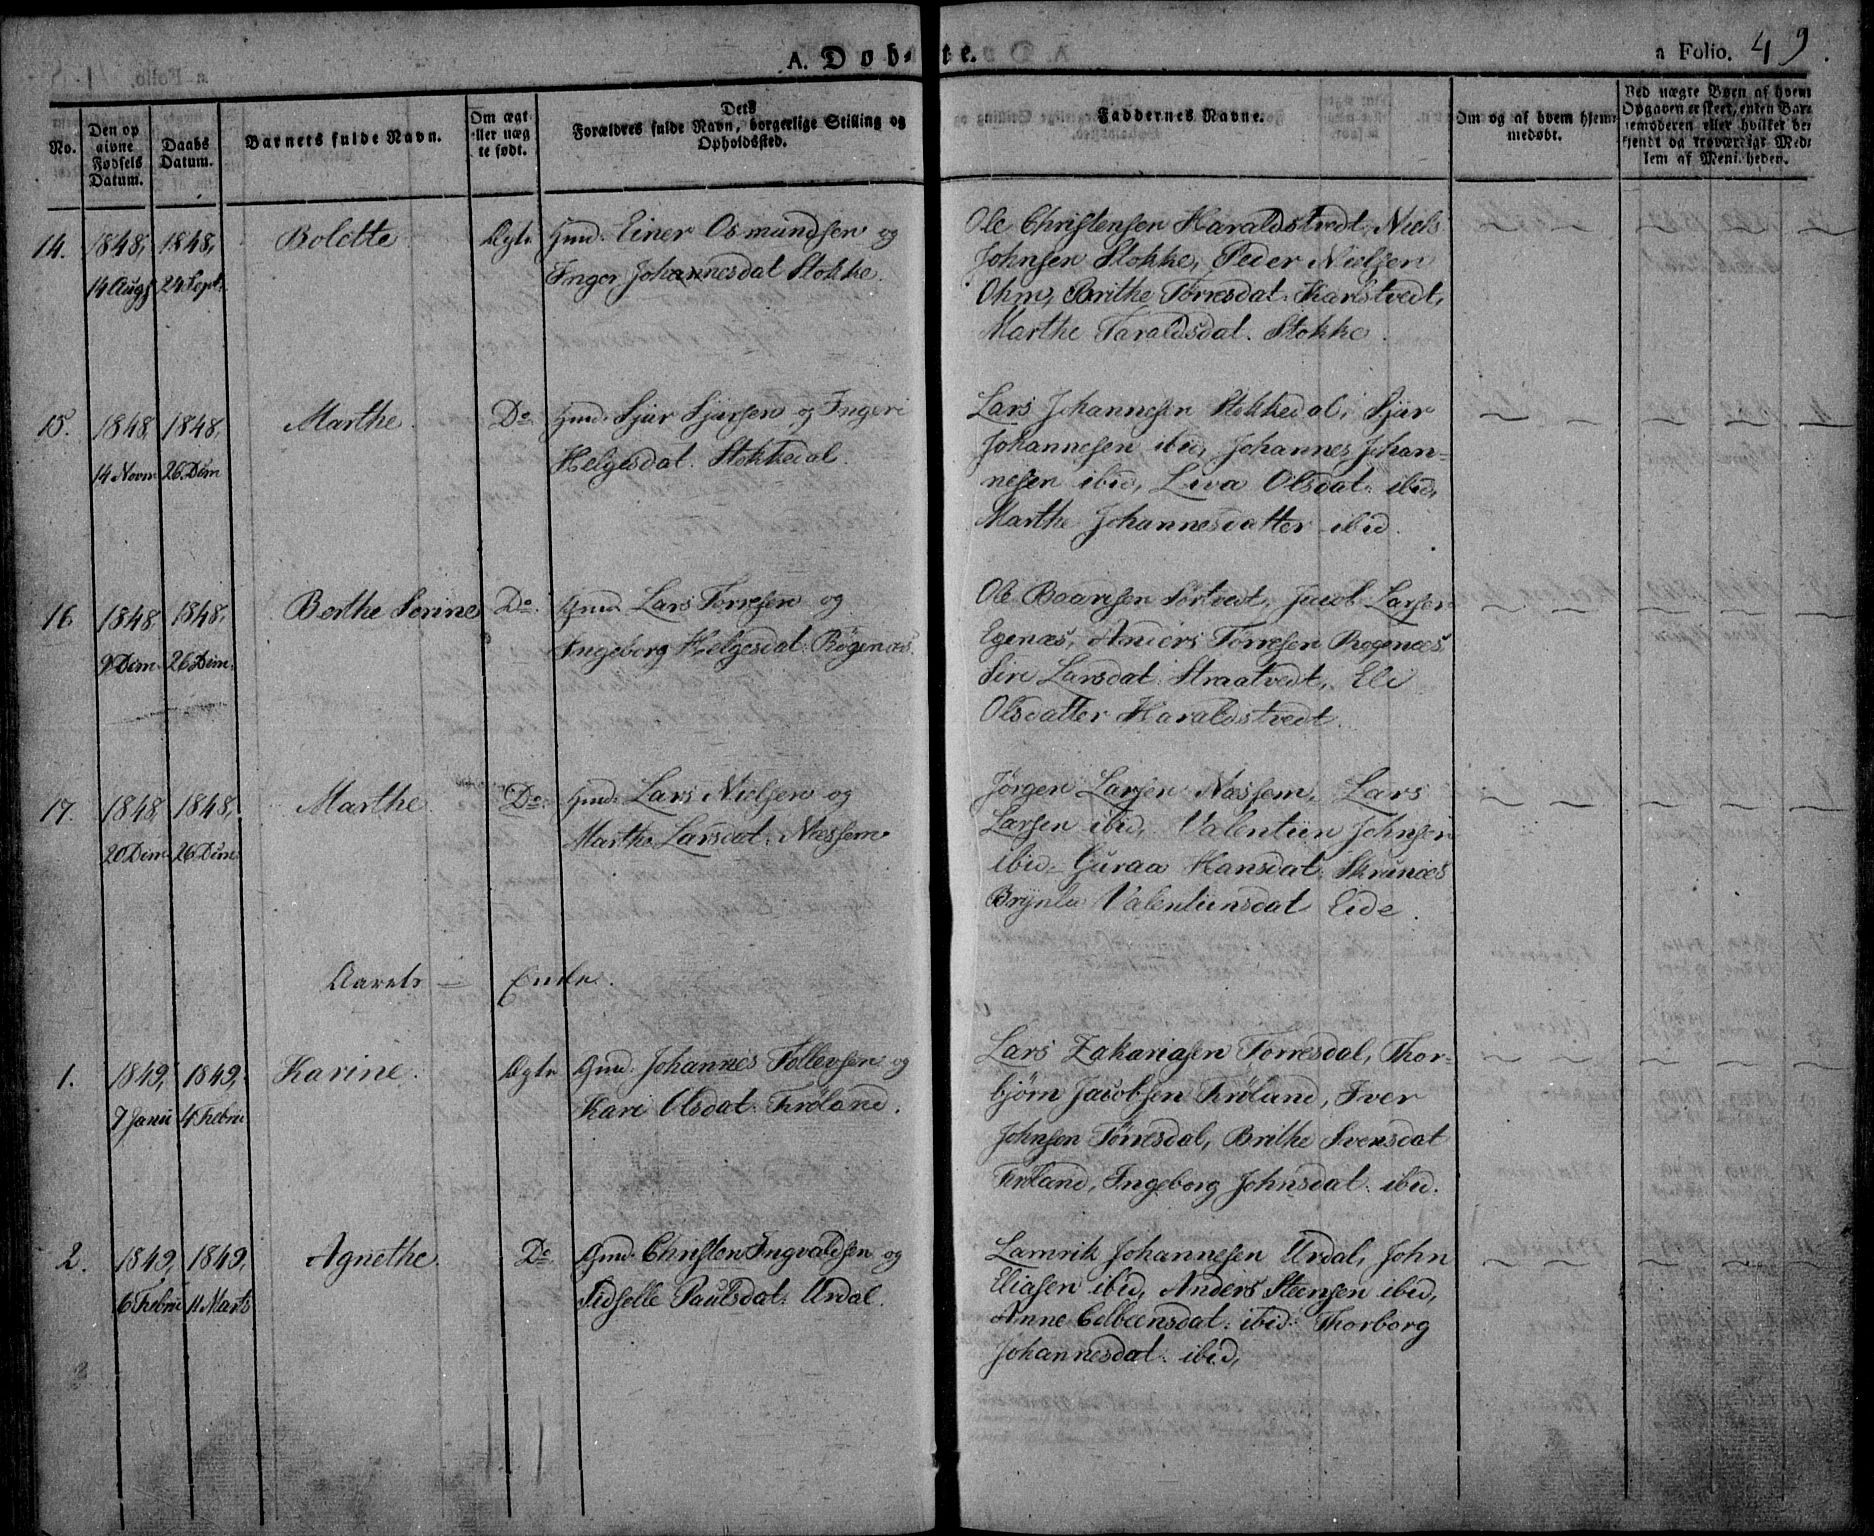 A. Døbte.
a Folio. 49.
No.
Den opgivne Fødsels Datum.
Daabs Datum.
Barnets fulde Navn.
Om ægte eller uægte født.
Dets Forældres fulde Navn, borgerlige Stilling og Opholdssted.
Faddernes Navne.
Om og af hvem hjemmedøbt.
Ved uægte Børn af hvem Opgaven er skeet, enten Barnemoderen eller hvilket bekjendt og troværdigt Medlem af Menigheden.
14. 1848, 1848, Bolette Ægte Gmd. Einer Osmundsen og
14 Aug 24 Sept. Inger Johannesdat Stokke
Ole Christensen Haraldstvedt, Niels
Johnsen Stokke, Peder Nielsen
Ohm, Brithe Torresdat. Karlstvedt,
Marthe Taraldsdat. Stokke.
15. 1848, 1848, Marthe. Do Gmd. Sjur Sjursen og Ingeri
14 Novm 26 Dcm Helgesdat. Stokkedal
Lars Johannesen Stokkedal, Sjur
Johannesen ibid, Johannes Johan-
nesen ibid, Liva Olsdat. ibid,
Marthe Johannesdatter ibid.
16 1848 1848, Berthe Serine Do. Gmd. Lars Torresen og
9 Dcm. 26 Dcm. Ingeborg Helgesdat. Bøgenæs.
Ole Baarsen Sørtvedt, Jacob Larsen
Egenæs, Anders Torresen Bøgenæs,
Siri Larsdat. Straatvedt, Eli
Olsdatter Haraldstvedt.
17. 1848, 1848, Marthe Do. Gmd. Lars Nielsen og
20 Dcm 26 Dcm Marthe Larsdat. Næssem
Jørgen Larsen Næssem, Lars
Larsen ibid, Valentiin Johnsen
ibid, Guraa Hansdat. Skrunæs
Brynla Valentiinsdat Eide.
Aarets — Ende.
1. 1849, 1849, Karine. Ægte Gmd. Johannes Tollevsen og
7 Janu 4 Febru Kari Olsdat. Frøland.
Lars Zakariasen Torresdal, Thor-
bjørn Jacobsen Frøland, Iver
Johnsen Tørresdal, Brithe Svensdat
Frøland, Ingeborg Johnsdat. ibid.
2. 1849, 1849, Agnethe. Do. Gmd. Christen Ingvaldsen og
6 Febru 11 Marts Sidselle Paulsdat. Urdal.
Lamrik Johannesen Urdal, John
Eliasen ibid, Anders Steensen ibid,
Anne Colbeensdat. ibid. Thorborg
Johannesdat. ibid,